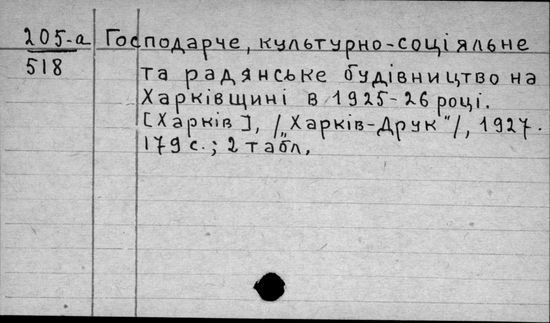 205-а Господарче, культурно-соціяльне
518
та радянське будівництво на
Харківщині в 1925-26 році.
[Харків], /„Харків-Друк"/, 1927.
179 с.; 2 табл.